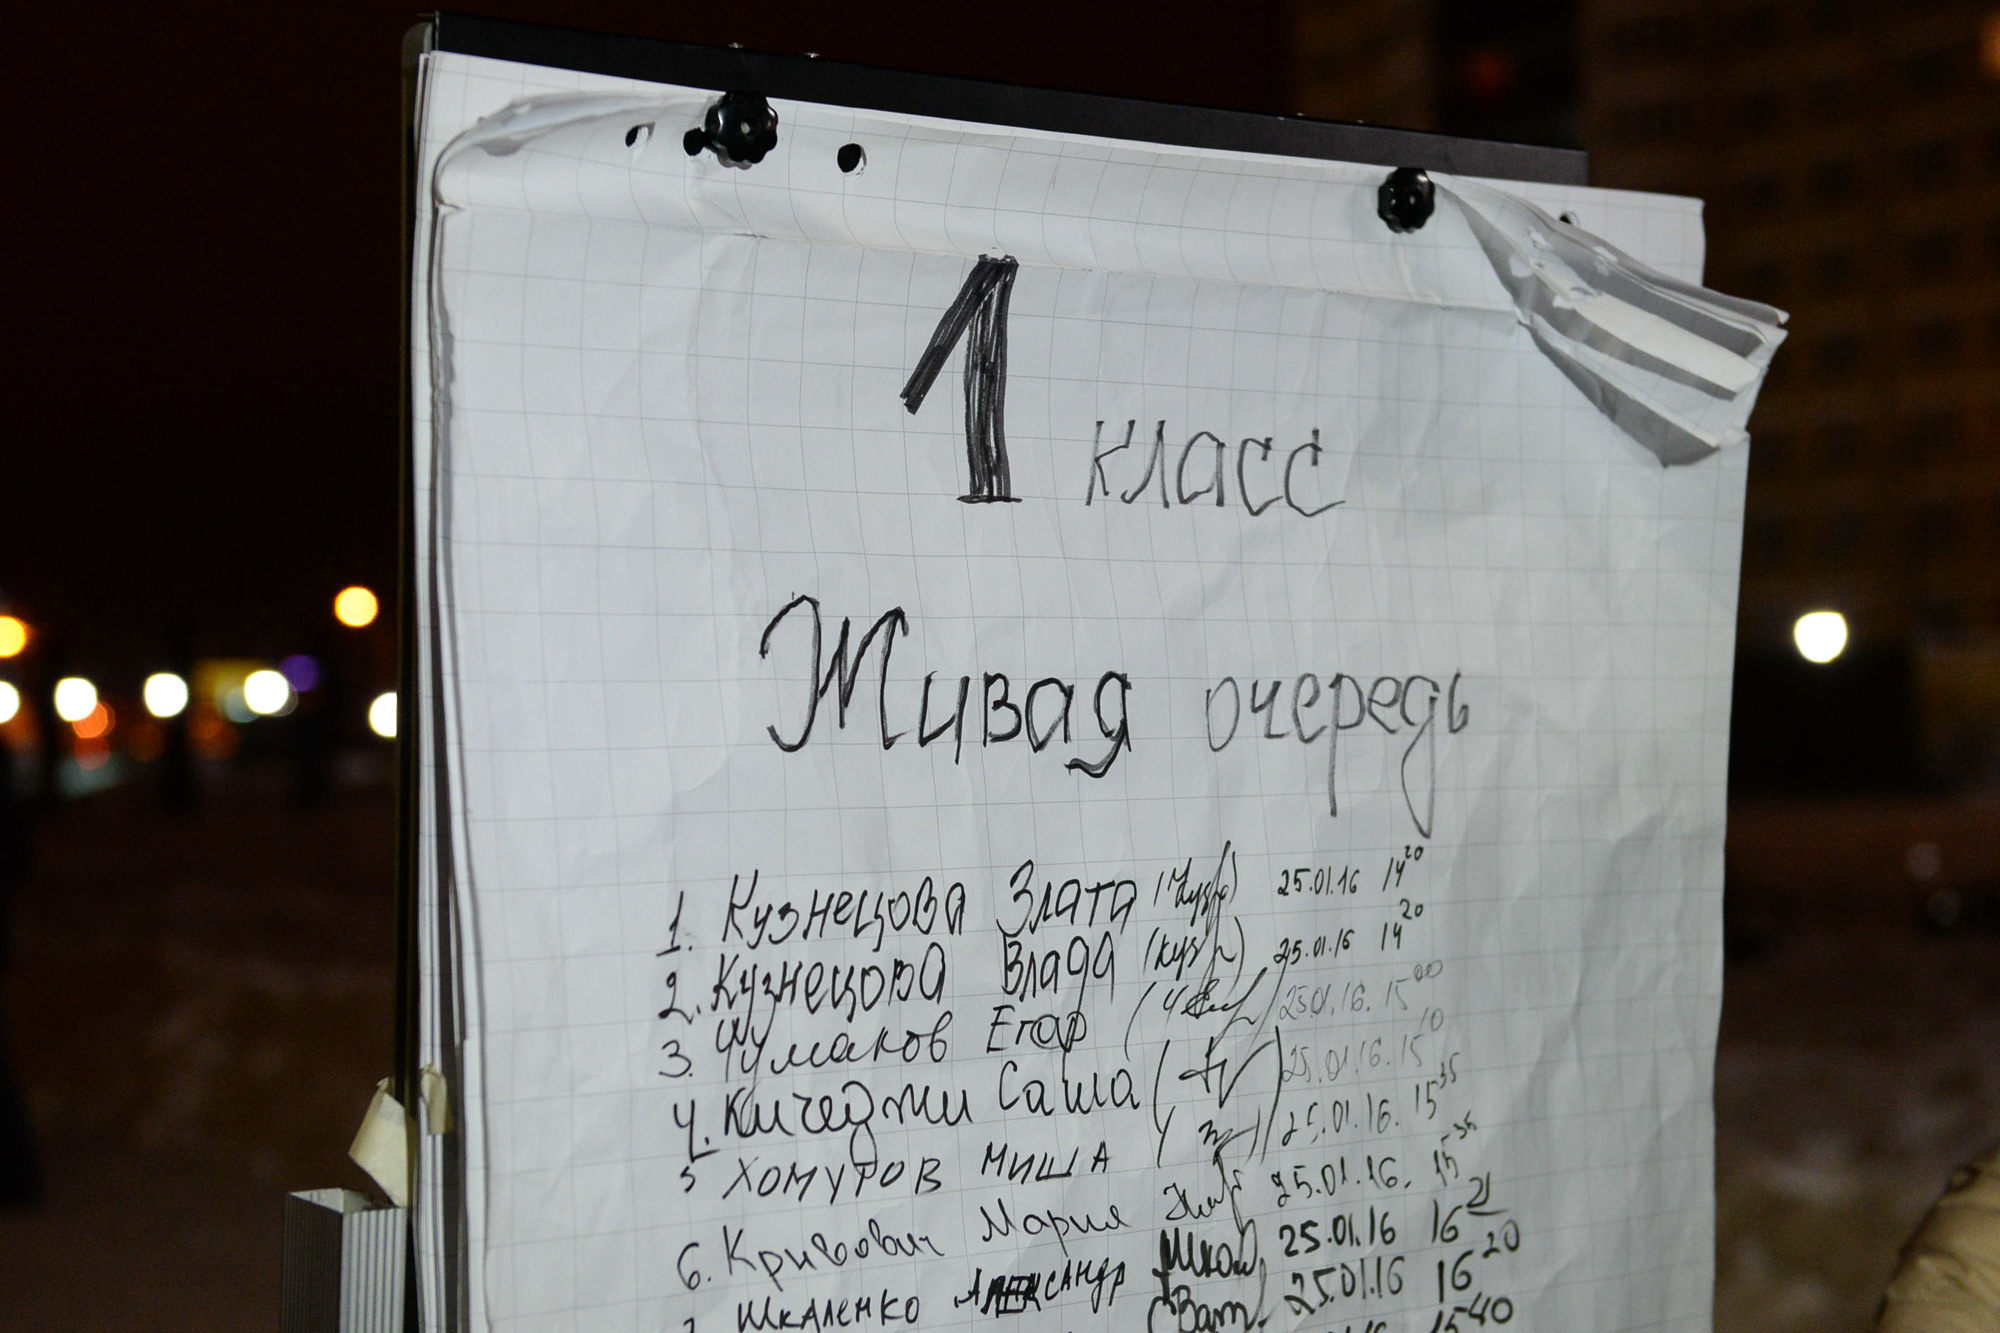 1 класс
Живая очередь
1. Кузнецова Злата 25.01.16 14 20
2. Кузнецова Влада 25.01.16 14 20
3. Чумаков Егор 25.01.16. 15 00
4. Кичеджи Саша 25.01.16. 15 10
5 Хомутов Миша 25.01.16. 15 35
6. Кривович Мария 25.01.16. 15 35
Шкаленко Александр 25.01.16 16 21
25.01.16 16 20
15 40